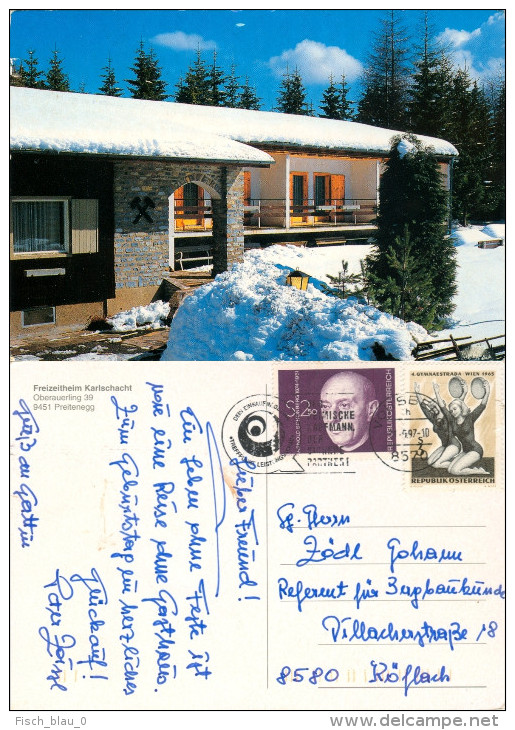 Freizeitheim Karlschacht
Oberauerling 39
9451 Preitenegg
Lieber Freund!
Ein Leben ohne Feste ist
wie eine Reise ohne Gasthaus.
Zum Geburtstag ein herzliches
Glückauf!
Peter
Gruß an Gattin
S 2.50
REPUBLIK ÖSTERREICH
4. GYMNAESTRADA WIEN 1965
REPUBLIK ÖSTERREICH
PARTNER!
Zödl Johann
Referent für Bergbaukunde
Villacherstraße 18
8580 Köflach
Fisch_blau_0
www.delcampe.net